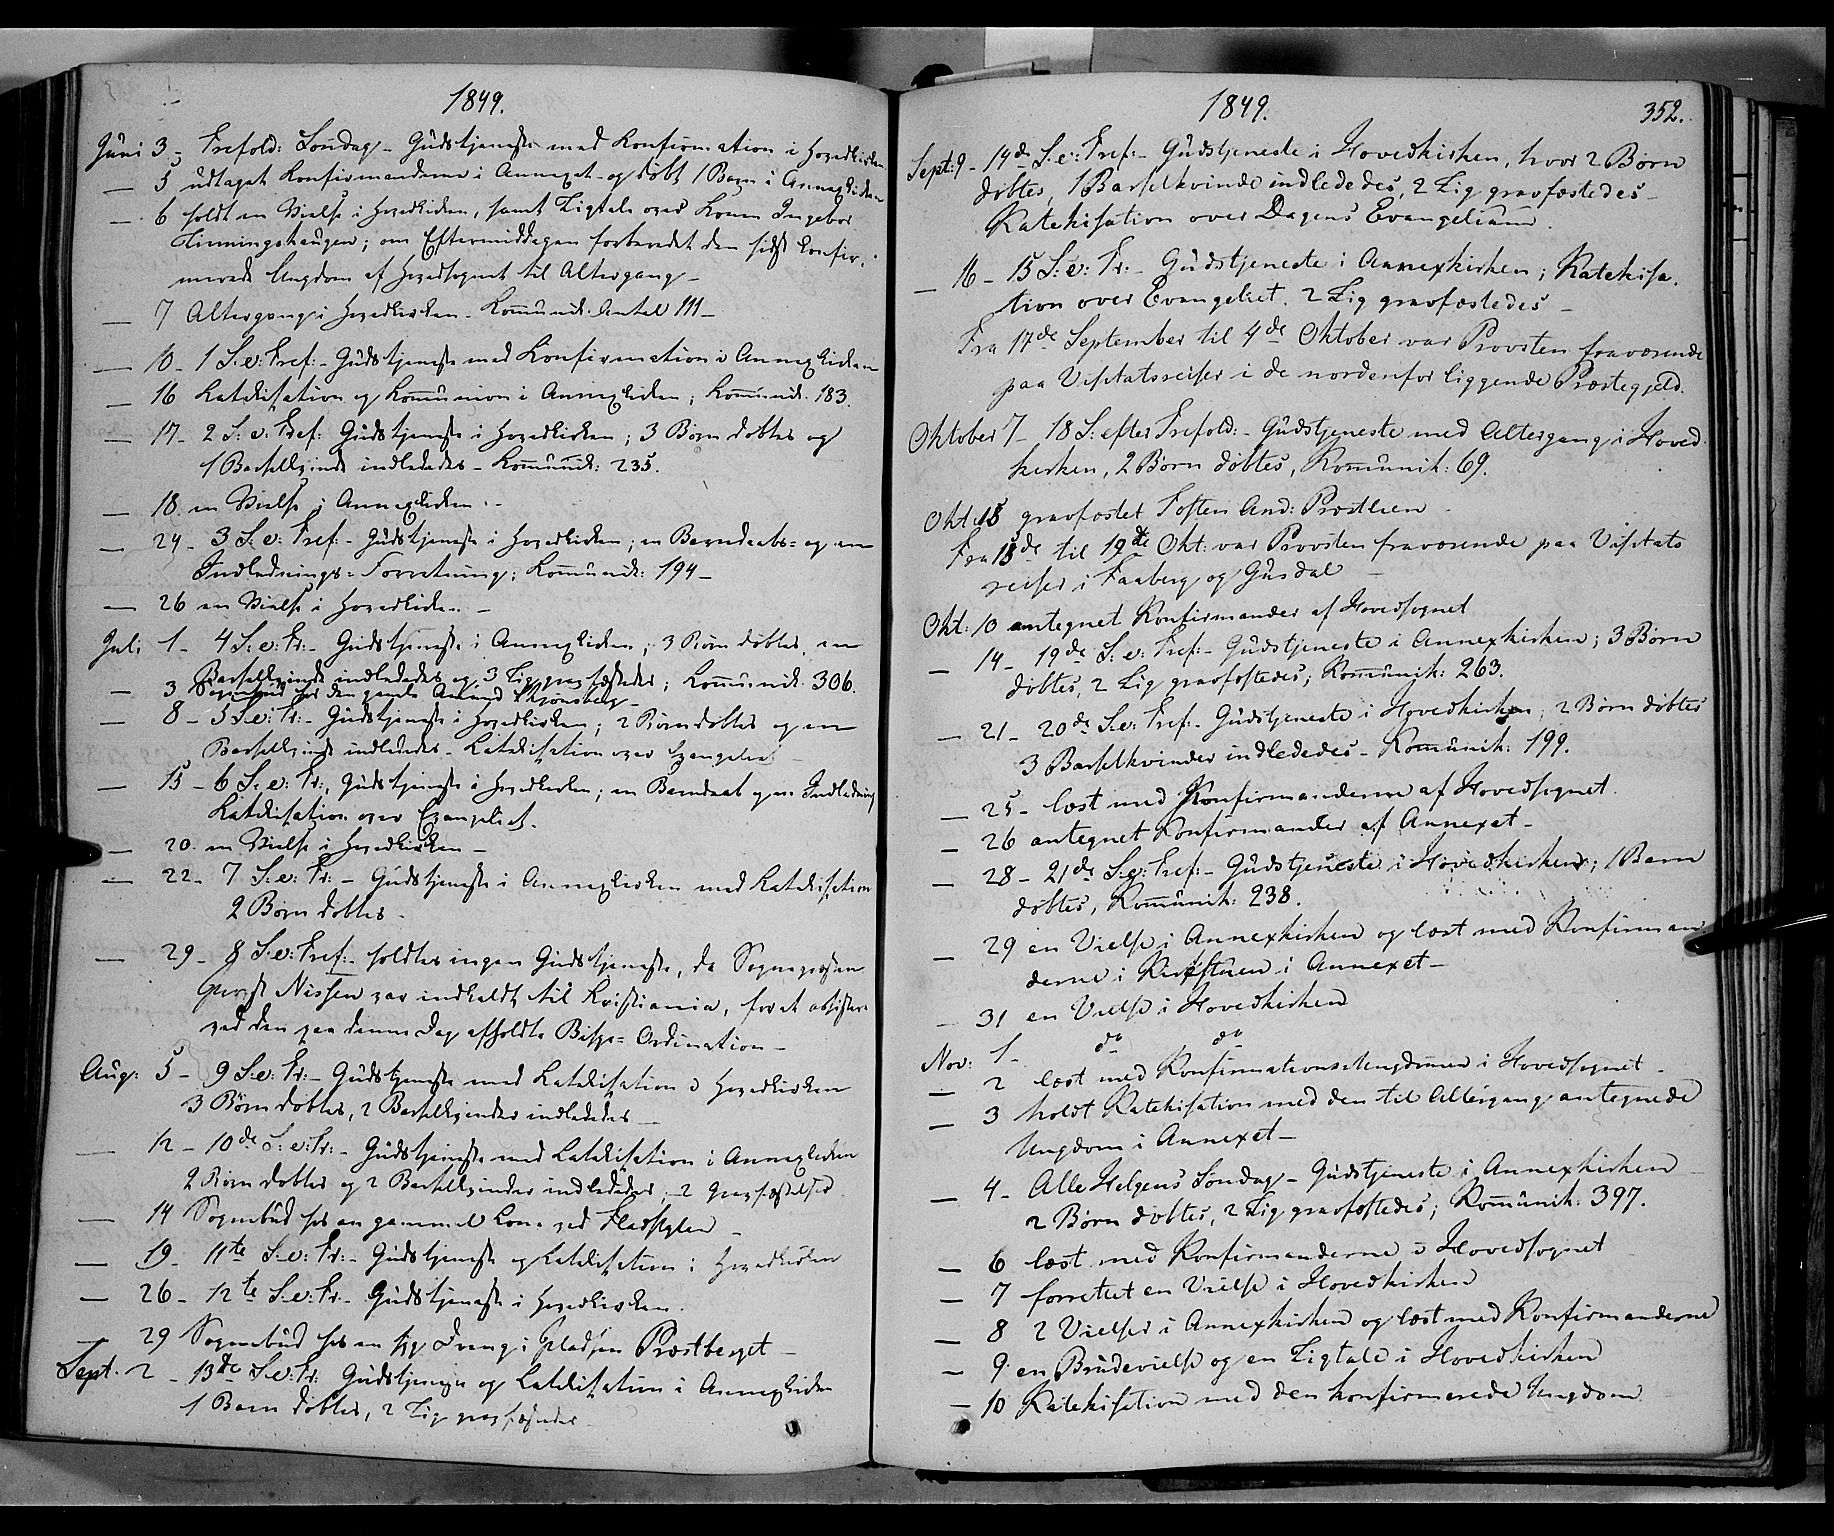 1849.
Juni 3 - Trefold: Søndag - Gudstjeneste med Konfirmation i Hovedkirken
— 5 udtaget Konfirmanderne i Annexet og døbt 1 Barn i Annexkirken
— 6 holdt en Vielse i Hovedkirken, samt Ligtale over Konen Ingebor
Tinningshaugen; om Eftermiddagen forberedet den sidst konfir-
merede Ungdom af Hovedsognet til Altergang -
— 7 Altergang i Hovedkirken. Kommunik. Antal 111 -
— 10 - 1 S. e: Tref: - Gudstjeneste med Konfirmation i Annexkirken
— 16 Katekisation og Kommunion i Annexkirken; Kommunik. 183.
— 17 - 2 S: e: Tref: Gudstjeneste i Hovedkirken; 3 Børn døbtes og
1 Barselkvinde indlededes - Kommunik: 235.
— 18. en Vielse i Annexkirken. -
— 24 - 3 S. e: Tref: - Gudstjeneste i Hovedkirken; en Barndaabs= og en
Indlednings= Forretning; Kommunik: 194 -
— 26 en Vielse i Hovedkirken -
Juli 1 - 4 S: e: Tr: - Gudstjeneste i Annexkirken; 3 Børn døbtes, en
Barselkvinde indlededes og 3 Lig gravfæstedes; Kommunik. 306.
— 3 Sognebud hos den gamle Amund Skjønsberg -
— 8 - 5 S. e: Tr: - Gudstjeneste i Hovedkirken; 2 Børn døbtes og en
Barselkvinde indlededes - Katekisation over Evangeliet -
— 15 - 6 S. e: Tr:, Gudstjeneste i Hovedkirken; en Barndaab og en Indledning
Katekisation over Evangeliet.
— 20. en Vielse i Hovedkirken -
— 22 - 7 S: e: Tr: - Gudstjeneste i Annexkirken med Katekisation
2 Børn døbtes -
— 29 - 8 S. e: Tref: - holdtes ingen Gudstjeneste, da Sognepræsten
Provst Nissen var indkaldt til Kristiania, for at assistere
ved den paa denne Dag afholdte Bispe= Ordination -
Aug: 5 - 9 S. e: Tr: - Gudstjeneste med Katekisation i Hovedkirken
3 Børn døbtes, 2 Barselkvinder indlededes -
— 12 - 10de S. e: Tr: - Gudstjeneste med Katekisation i Annexkirken
2 Børn døbtes og 2 Barselkvinder indlededes, 2 Gravfæstelser.
— 14 Sognebud hos en gammel Kone ved
— 19 - 11te S. e: Tr: - Gudstjeneste og Katekisation i Hovedkirken
— 26 - 12te S. e: Tr: - Gudstjeneste i Hovedkirken.
— 29 Sognebud hos en syg Dreng i Pladsen Præstberget -
Sept. 2 - 13de S. e: Tr: Gudstjeneste og Katekisation i Annexkirken
1 Barn døbtes, 2 Lig gravfæstedes
1849.
352.
Sept: 9 - 14de S. e: Tref: - Gudstjeneste i Hovedkirken, hvor 2 Børn
døbtes, 1 Barselkvinde indlededes, 2 Lig gravfæstedes -
Katekisation over Dagens Evangelium.
— 16 - 15 S: e: Tr: - Gudstjeneste i Annexkirken; Katekisa-
tion over Evangeliet. 2 Lig gravfæstedes -
Fra 17de September til 4de Oktober var Provsten fraværende
paa Visitatsreiser i de nordenfor liggende Præstegjeld.
Oktober 7 - 18 S: efter Trefold: - Gudstjeneste med Altergang i Hoved-
kirken, 2 Børn døbtes, Kommunik: 69.
Okt: 15 gravfæstet Tosten And: Præstlien -
Fra 15de til 19de Okt: var Provsten fraværende paa Visitats
reiser i Faaberg og Gusdal -
Okt: 10 antegnet Konfirmander af Hovedsognet
— 14 - 19de S. e: Tref: - Gudstjeneste i Annexkirken; 3 Børn
døbtes, 2 Lig gravfæstedes; Kommunik: 263.
— 21 - 20de S. e: Tref: - Gudstjeneste i Hovedkirken; 2 Børn døbtes
3 Barselkvinder indlededes - Kommunik: 199.
— 25 - læst med Konfirmanderne af Hovedsognet.
— 26 antegnet Konfirmander af Annexet -
— 28 - 21de S. e: Tref: - Gudstjeneste i Hovedkirken; 1 Barn
døbtes, Kommunik: 238.
— 29 en Vielse i Annexkirken og læst med Konfirman-
derne i Kirkestuen i Annexet -
— 31 en Vielse i Hovedkirken
Nov: 1 - do do
— 2 læst med Konfirmationsungdommen i Hovedsognet -
— 3 holdt Katekisation med den til Altergang antegnede
Ungdom i Annexet -
— 4 - Alle Helgens Søndag - Gudstjeneste i Annexkirken
2 Børn døbtes, 2 Lig gravfæstedes; Kommunik: 397.
— 6 læst med Konfirmanderne i Hovedsognet
— 7 forrettet en Vielse i Hovedkirken
— 8 2 Vielser i Annexkirken og læst med Konfirmanderne
— 9 en Brudevielse og en Ligtale i Hovedkirken
— 10 Katekisation med den konfirmerede Ungdom